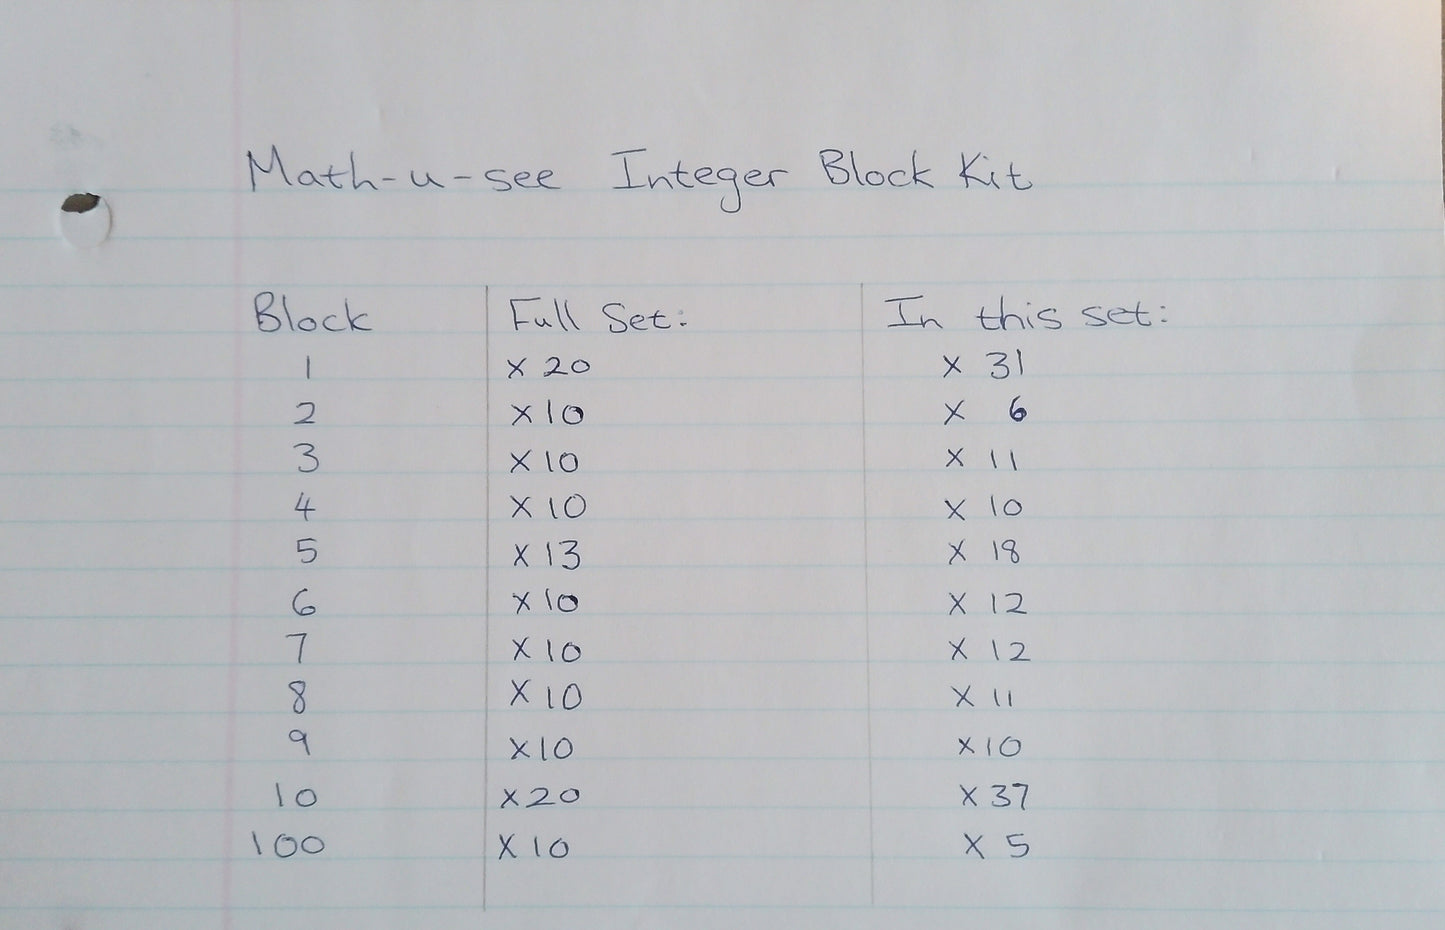 Math-u-see Integer Block Kit
Block Full Set: In this set:
1 x 20 x 31
2 x 10 x 6
3 x 10 x 11
4 x 10 x 10
5 x 13 x 18
6 x 10 x 12
7 x 10 x 12
8 x 10 x 11
9 x 10 x 10
10 x 20 x 37
100 x 10 x 5